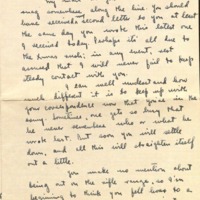 snag somewhere along the line. You should
have received a second letter to you at least
the same day you wrote this latest one
I received today. Perhaps its all due to
the Xmas rush; in any event, rest
assured that I will never fail to keep
steady contact with you.
I can well understand how
much different it is to keep up with
your correspondence now that you're in the
Army. Sometimes, one gets so busy that
he never remembers who or what he
wrote last. But soon you will settle
down, and all this will straighten itself
out a little.
You made no mention about
being out on the rifle range, so I'm
beginning to think you fell heir to a